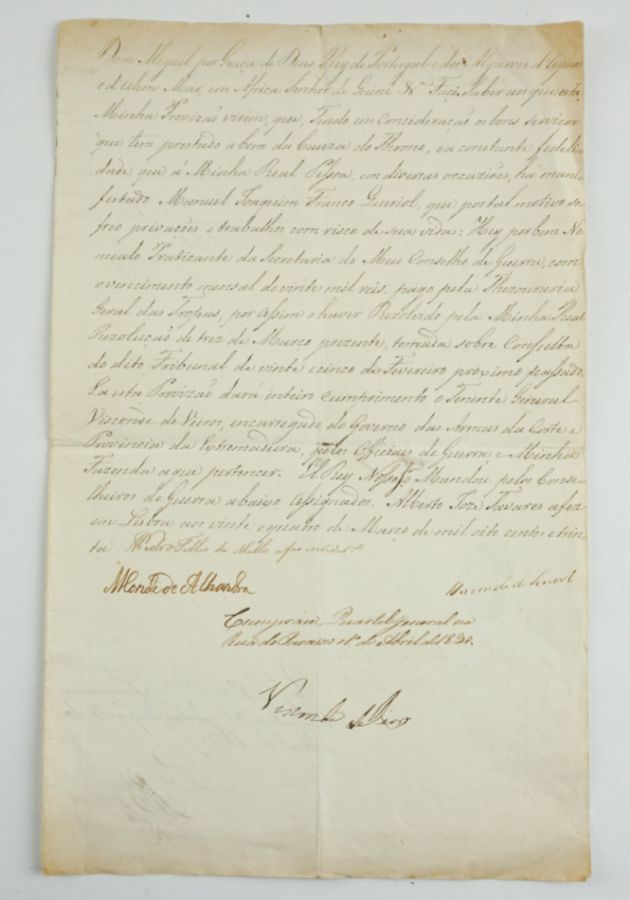 Dom Miguel por Graça de Deus Rey de Portugal e dos Algarves d'Aquem
e d'Alem Mar, em Africa Senhor de Guiné &ª Faço Saber aos que esta
Minha Provizão virem, que, Tendo em Consideração os bons serviços
que tem prestado a bem da Cauza do Throno, e a constante fedeli-
dade que á Minha Real Pessoa, em diversas occaziões, há mani-
festado Manuel Joaquim Franco, que por tal motivo so-
freo privações e trabalhos com risco de sua vida: Hey por bem No-
mealo Praticante da Secretaria do Meu Conselho de Guerra, com
o vencimento mensal de vinte mil reis, pago pela Thezouraria
Geral das Tropas, por assim o haver Rezolvido pela Minha Real
Rezolução de trez de Março prezente, tomada sobre Consulta
do dito Tribunal de vinte e cinco de Fevereiro proximo passado.
E a esta Provizão dará inteiro cumprimento o Tenente General
Visconde de Veiros, encarregado do Governo das Armas da Corte e
Provincia da Extremadura, pelos Officiaes de Guerra e Minha
Fazenda a que pertencer. El Rey Nosso Sr. o Mandou pelos Conse-
lheiros de Guerra abaixo assignados. Alberto Joze Tavares a fez
em Lisboa aos vinte e quatro de Março de mil oito centos e trin-
ta de Mello a fez escrever
Conde de Alhandra
Visconde de
Cumpra-se Quartel General na
Rua do Paraizo 1º de Abril de 1830.
Visconde de Veiros